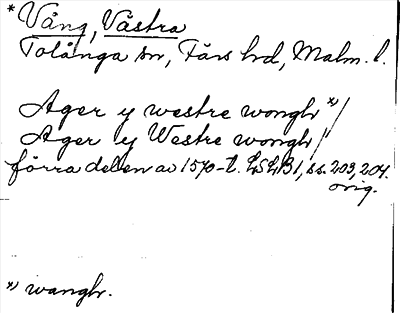 * Vång, Västra
Tolånga sn, Färs hd, Malm. l.
Ager y westre wongh x)/
Ager y Westre wongh/
förra delen av 1570-t. LSLB1, ss. 203, 204.
orig.
x) wangh.